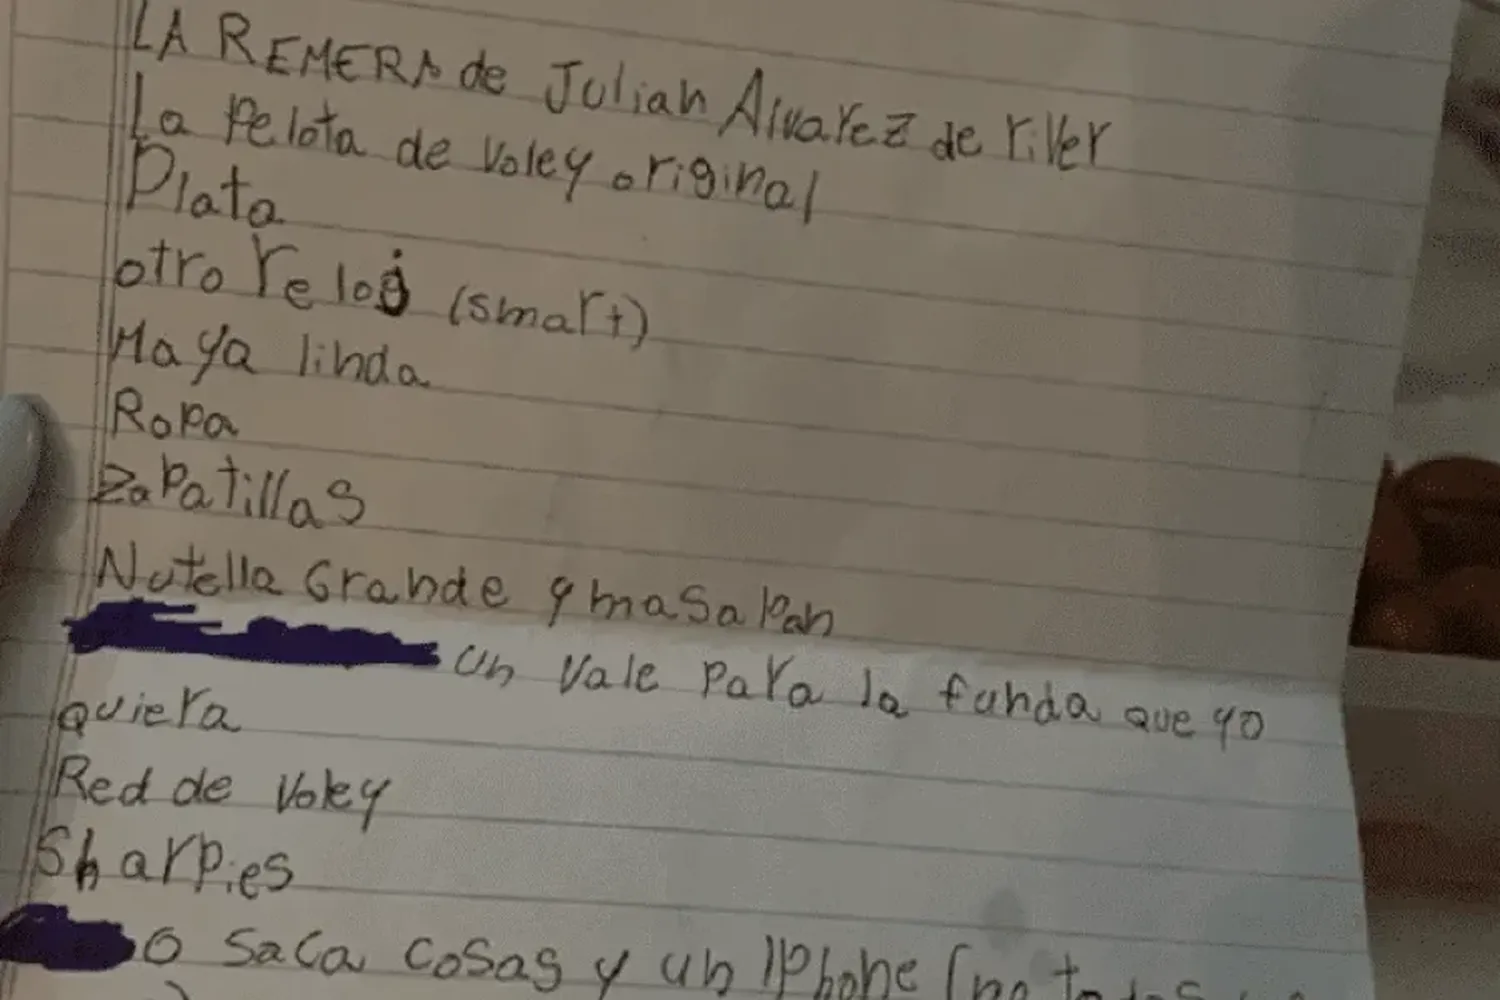 LA REMERA de Julian Alvarez de river
La Pelota de voley original
Plata
otro reloj (smart)
Maya linda
Ropa
zapatillas
Nutella Grande y masapan
un vale para la funda que yo
quiera
Red de voley
Sharpies
o saca cosas y un IPhone (no